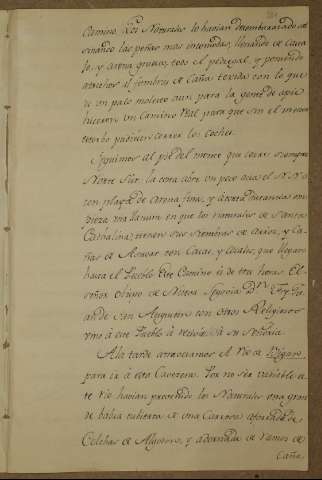 camino. Los Naturales lo havian desembarazado
sinando las peñas mas incomodas, llenando de
y arena gruesa, todo el pedregal, y poniendo
a trechos el fombras de Caña texida con lo que
de un paso molesto aun para la gente de apie
hicieron un Camino Real para que sin el menor
estorbo pudiesen correr los coches.
Seguimos al pie del monte que corre siempre
Norte Sur, la costa abre un poco azia el
con playas de arena fina, y a corta distancia em
pieza una llanura en que los naturales de Santa
Cathalina, tienen sus Siembras de Arroz, y Ca
ñas de Azucar con Cacao, y Cocales, que llegan
hasta el Pueblo. Este Camino es de tres horas. El
señor Obispo de Nueva Segovia Dn. Fray
de San Agustin con otros Religiosos
vino a este Pueblo à Recivir à su Señoria
A la tarde atravesamos el Rio de
para ir à esta Cavezera. Por no ser vadeable es
te Rio havian prevenido los Naturales una gran
de balsa cubierta de una Carroza aforrada de
Colchas de Algodon, y adornada de ramos de
Caña